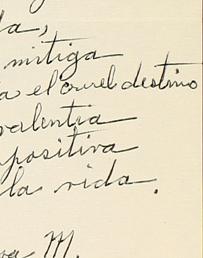 da,
mitiga
a el cruel destino
valentia
positiva
la vida.
M.